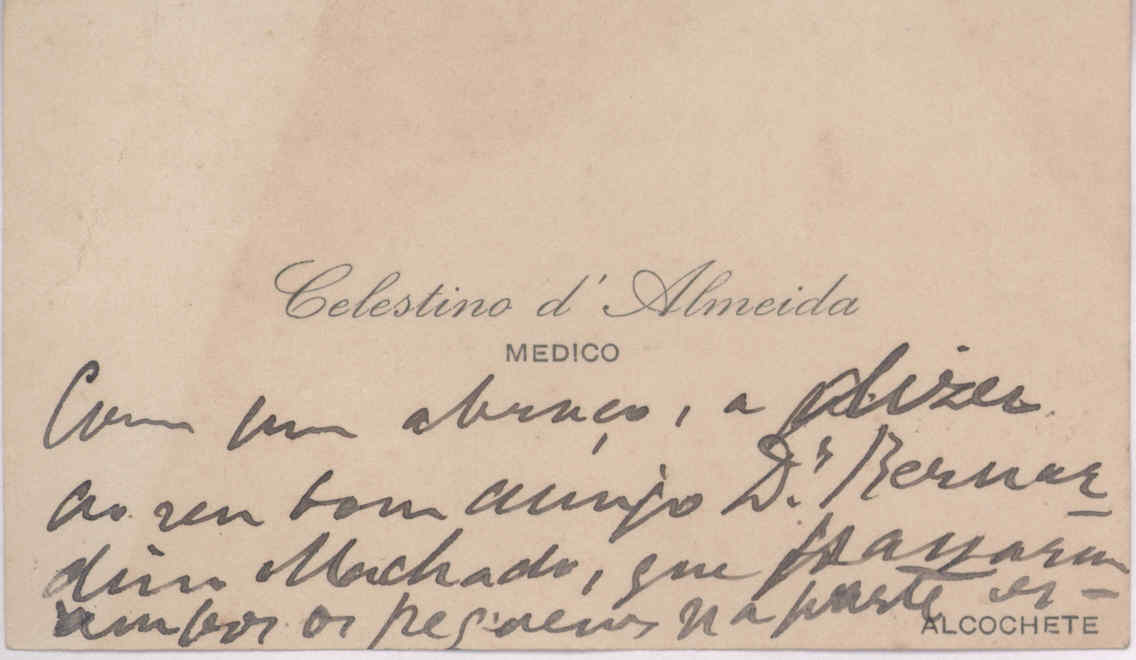 Celestino d'Almeida
MEDICO
Com um abraço, a dizer
ao seu bom amigo D.r Bernar
dino Machado, que passaram
ambos os pequenos na parte es-
ALCOCHETE